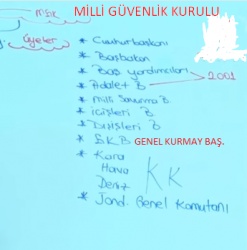 MGK MİLLİ GÜVENLİK KURULU
Üyeler
* Cumhurbaşkanı
* Başbakan
* Baş. yardımcıları
* Adalet B 2001
* Milli Savunma B
* İçişleri B
* Dışişleri B
* GKB GENEL KURMAY BAŞ.
* Kara
Hava KK
Deniz
* Jand. Genel Komutanı